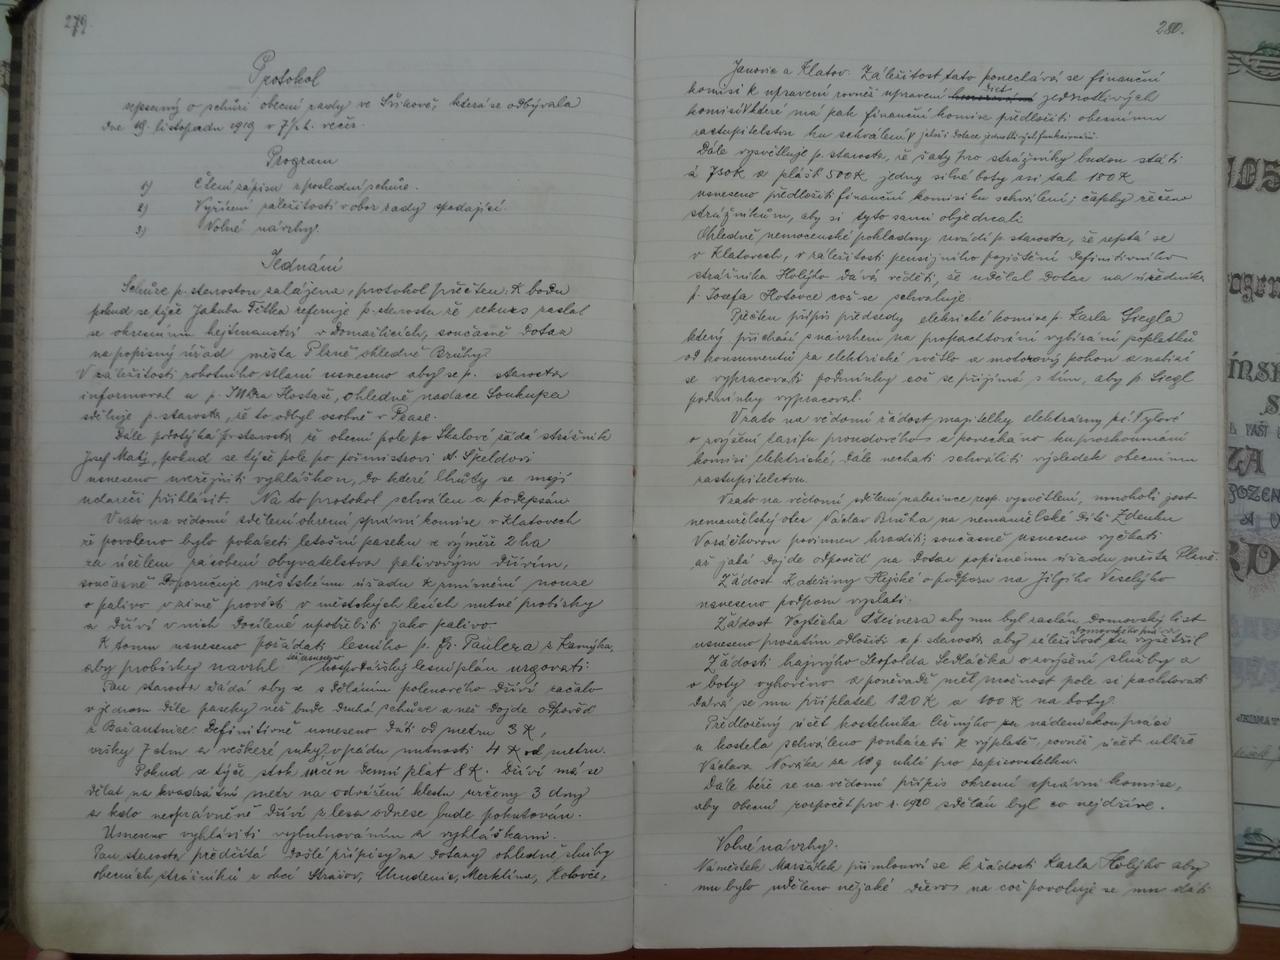 279.
Protokol
sepsaný o schůzi obecní rady ve Švihově, která se odbývala
dne 19. listopadu 1919 v 7½ h. večer.
Program
1) Čtení zápisu z poslední schůze.
2) Vyřízení záležitostí v obor rady spadající.
3) Volné návrhy.
Jednání
Schůze p. starostou zahájena, protokol přečten: K bodu
pokud se týče Jakuba Fětka referuje p. starosta že rekurs zaslal
se okresnímu hejtmanství v Domažlicích, současně dotaz
na popisný úřad města Plzně ohledně Brůhy.
V záležitosti robotního stlaní usneseno aby se p. starosta
informoval u p. JUDra Hostaše, ohledně nadace Soukupa
sděluje p. starosta, že to odbyl osobně v Praze.
Dále podotýká p. starosta že obecní pole po Skalové žádá strážník
Josef Matj, pokud se týče pole po poštmistrovi A. Špeldovi
usneseno uveřejniti vyhláškou, do které lhůty se mají
uchazeči přihlásit. Na to protokol schválen a podepsán
Vzato na vědomí sdělení okresní správní komise v Klatovech
že povoleno bylo pokáceti letošní paseku ve výměře 2 ha
za účelem zásobení obyvatelstva palivovým dřívím,
současně doporučuje městskému úřadu k zmírnění nouze
o palivo v zimě provésti v městských lesích nutné probírky
a dříví v nich docílené upotřebiti jako palivo.
K tomu usneseno požádati lesního p. Fr. Paulera z Kamýka,
aby probírky navrhl hospodářský lesní plán urgovati:
Pan starosta žádá aby se s děláním polenového dříví začalo
v jednom díle paseky než bude druhá schůze a než dojde odpověd
z Bažantnice. Definitivně usneseno dáti od metru 3 K,
vršky 7 ctm a veškeré suky v pádu nutnosti 4 K od metru.
Pokud se týče stok určen denní plat 8 K. Dříví má se
dělat na kvadrátní metr na odvážení klestu určeny 3 dny
a kdo neoprávněně dříví z lesa odnese bude pokutován.
Usneseno vyhlásiti vybubnováním a vyhláškami.
Pan starosta předčítá došlé přípisy na dotazy ohledně služby
obecních strážníků z obcí Strážov, Chudenic, Merklína, Kolovče,
280.
Janovic a Klatov. Záležitost tato ponechává se finanční
komisi k upravení rovněž upravení diet jednotlivých
komisí které má pak finanční komise předložiti obecnímu
zastupitelstvu ku schválení jakož i dotace jednotlivých funkcionářů.
Dále vysvětluje p. starosta, že šaty pro strážníky budou státi
á 730 K a plášť 500 K jedny silné boty asi tak 180 K
usneseno předložiti finanční komisi ku schválení; čepky řečeno
strážníkům, aby si tyto sami objednali
Ohledně nemocenské pokladny uvádí p. starosta, že zeptá se
v Klatovech, v záležitosti pensijního pojištění definitivního
strážníka Holýho dává věděti, že udělal dotaz na úředníka
p. Josefa Hotovce což se schvaluje.
Přečten přípis předsedy elektrické komise p. Karla Siegla
který přichází s návrhem na propachtování vybírání poplatků
od konsumentů za elektrické světlo a motorový pohon a nabízí
se vypracovati podmínky což se přijímá s tím, aby p. Siegl
podmínky vypracoval.
Vzato na vědomí žádost majitelky elektrárny pí. Tylové
o zvýšení tarifu proudového a ponecháno ku prozkoumání
komisi elektrické, dále nechati schváliti výsledek obecnímu
zastupitelstvu.
Vzato na vědomí sdělení nalezince resp. vysvětlení, mnoholi jest
nemanželský otec Václav Brůha na nemanželské dítě Zdenku
Voráčkovou povinen hraditi; současně usneseno vyčkati
až jaká dojde odpověď na dotaz popisnému úřadu města Plzně.
Žádost Kateřiny Hejské o podporu na Jiljiho Veselýho
usneseno podporu vyplati.
Žádost Vojtěcha Šteinera aby mu byl zaslán domovský list
usneseno prozatím odložiti a p. starosta aby záležitost tu vyšetřil
Žádosti hajného Leopolda Sedláčka o zvýšení služby a
o boty vyhověno a poněvadž měl možnost pole si pachtovati
dává se mu příplatek 120 K a 100 K na boty.
Předložený účet kostelníka Černýho za nádenickou práci
u kostela schváleno poukázati k výplatě, rovněž účet uhlíře
Václava Nováka za 10 q uhlí pro zapisovatelku.
Dále béře se na vědomí přípis okresní správní komise,
aby obecní rozpočet pro r. 1920 sdělán byl co nejdříve.
Volné návrhy.
Náměstek Maršálek přimlouvá se k žádosti Karla Holýho aby
mu bylo uděleno nějaké dřevo na což povoluje se mu dáti